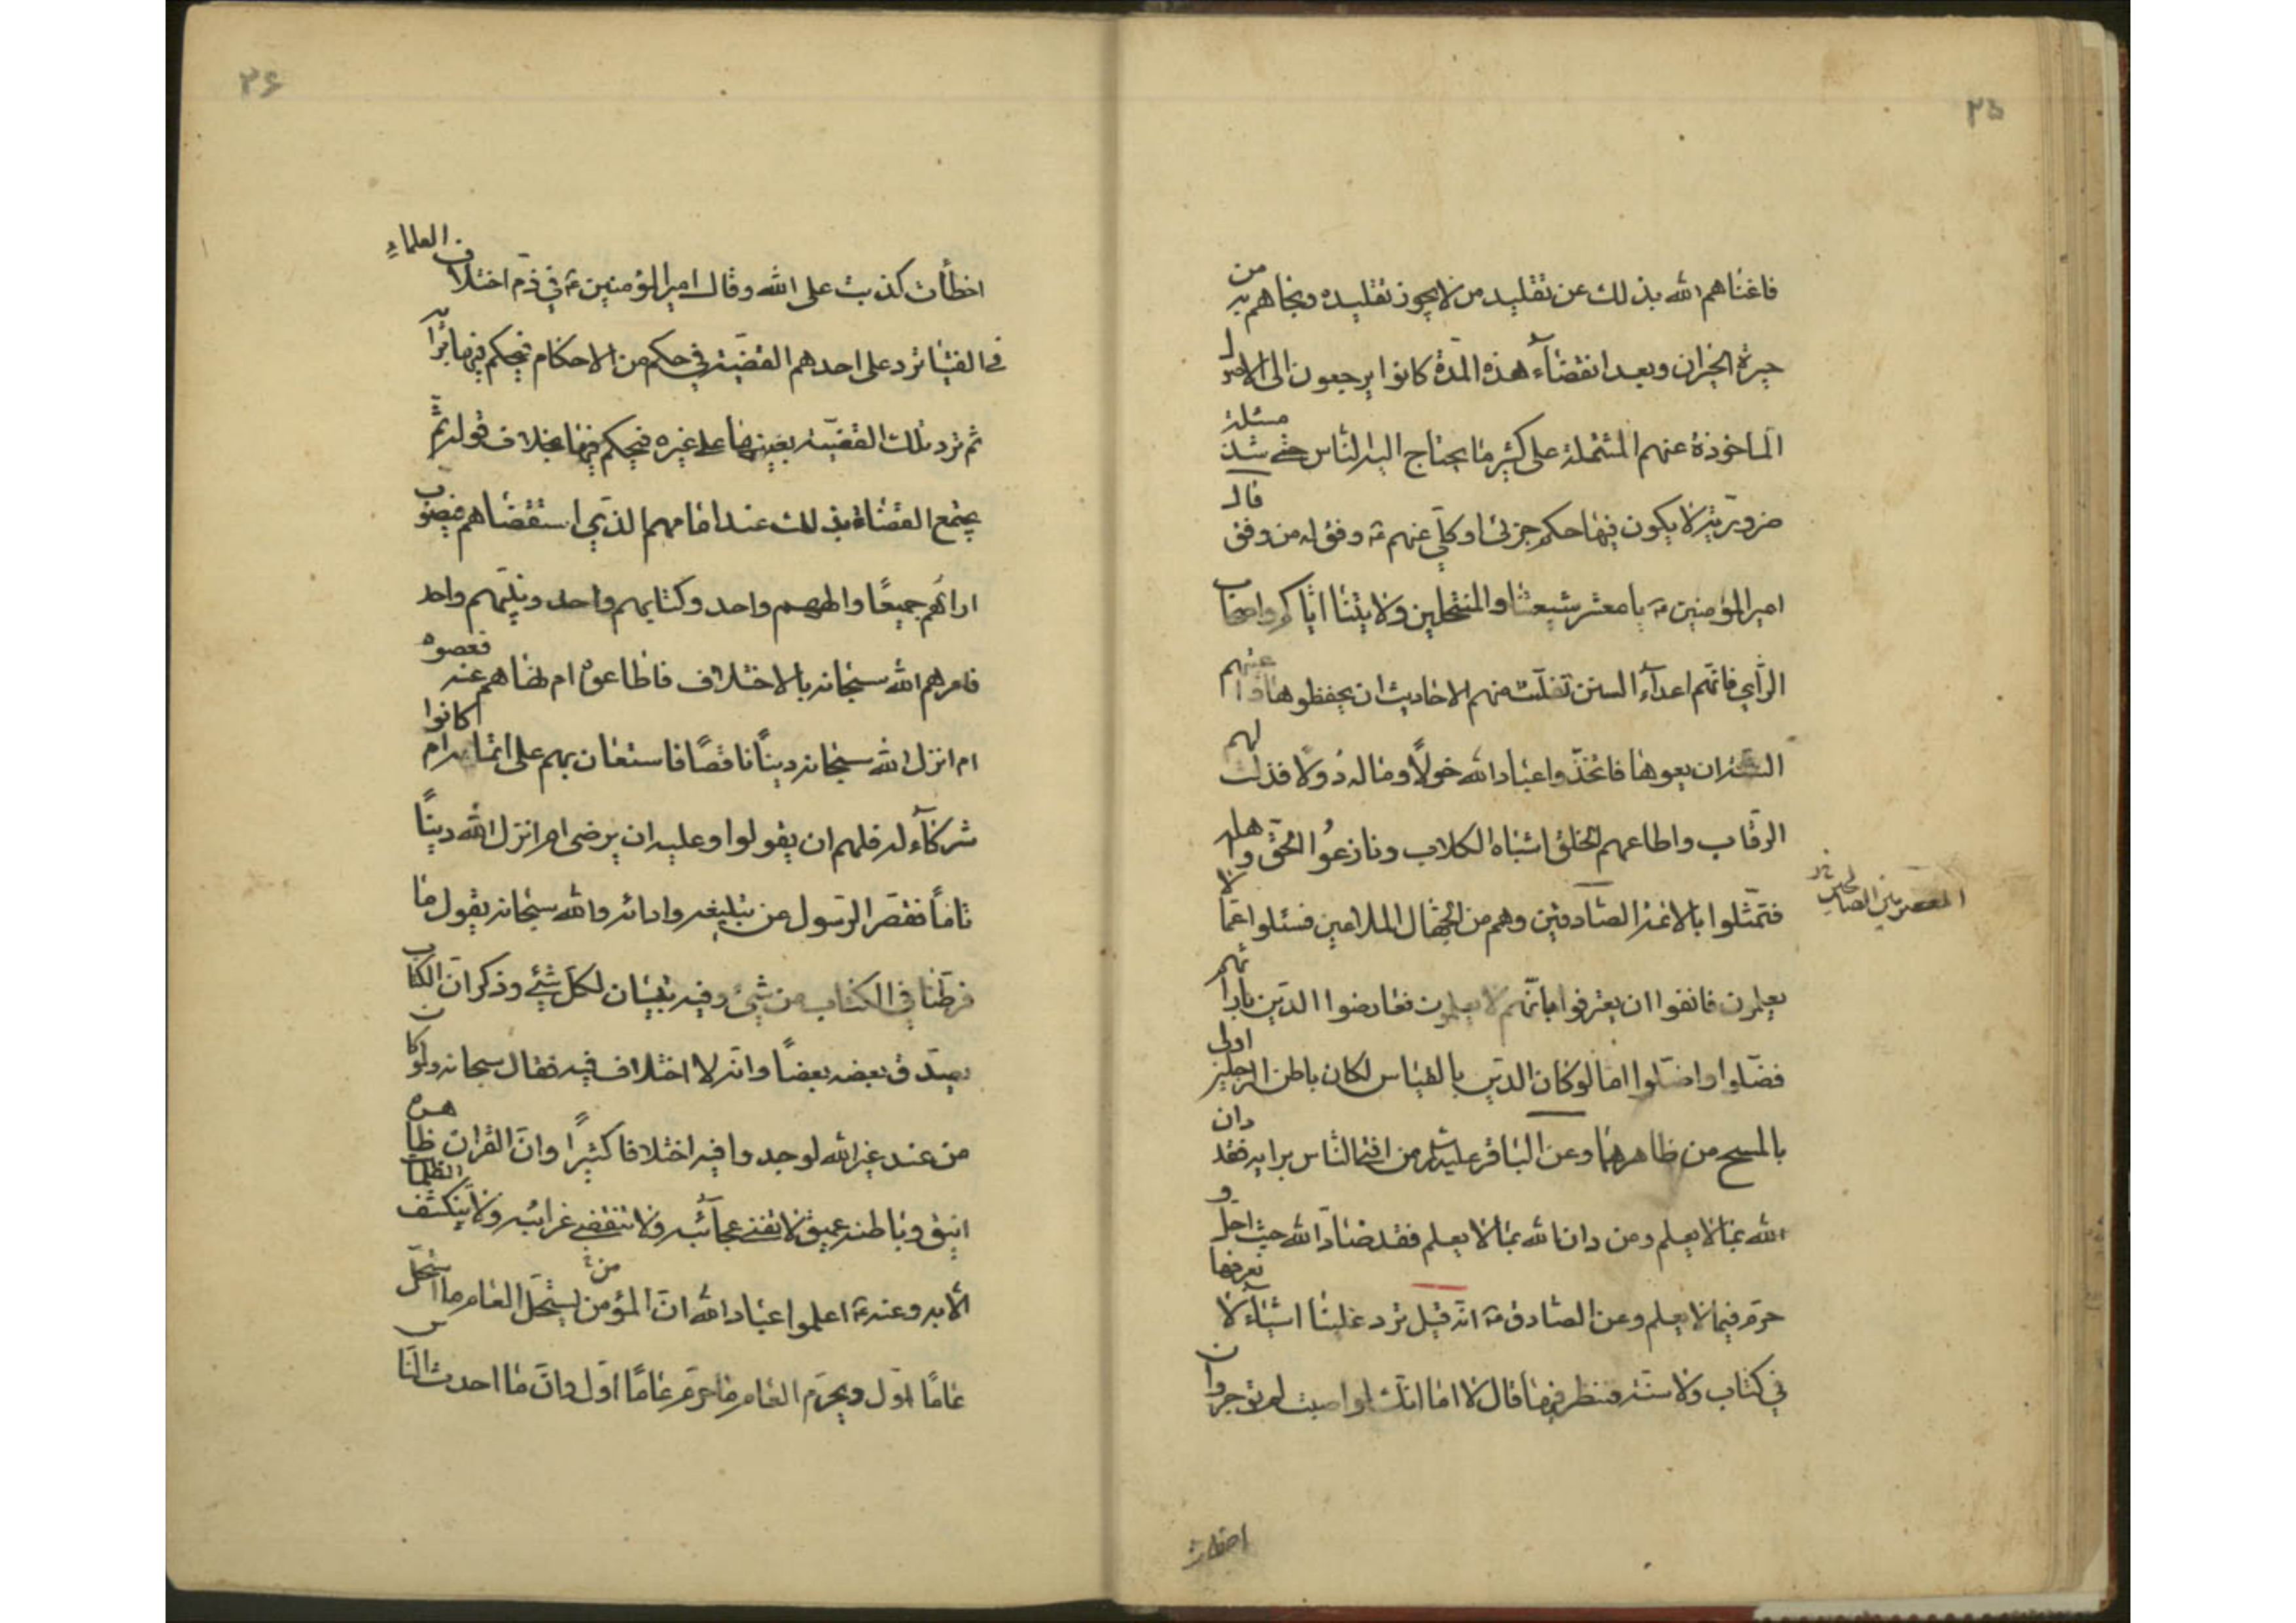 ۲۵
فاغناهم الله بذلك عن تقليد من لا يجوز تقليده ونجاهم به من
حيرة الحيران وبعد انقضاء هذه المدة كانوا يرجعون الى الاصول
الماخوذة عنهم المشتملة على كثير مما يحتاج اليه الناس حتى شذ مسئلة
ضرورية لا يكون فيها حكم جزئى او كلى عنهم ع وفق له من وفق قال
امير المؤمنين ع يا معشر شيعتنا والمنتحلين ولايتنا اياكم واصحاب
الراى فانهم اعداء السنن تفلتت منهم الاحاديث ان يحفظوها واعيتهم
السنة ان يعوها فاتخذوا عباد الله خولا وماله دولا فذلت لهم
الرقاب واطاعهم الخلق اشباه الكلاب ونازعوا الحق واهله
فتمثلوا بالائمة الصادقين وهم من الجهال الملاعين فسئلوا عما لا
يعلمون فانفوا ان يعترفوا بانهم لا يعلمون فعارضوا الدين بآرائهم
فضلوا واضلوا اما لو كان الدين بالقياس لكان باطن الرجلين اولى
بالمسح من ظاهرهما وعن الباقر عليه السلم من افتى الناس برايه فقد دان
الله بما لا يعلم ومن دان الله بما لا يعلم فقد ضاد الله حيث احل و
حرم فيما لا يعلم وعن الصادق ع انه قيل ترد علينا اشياء لا نعرفها
في كتاب ولا سنة فننظر فيها قال لا اما انك لو اصبت لم توجر وان
اخطات
۲۶
اخطأت كذبت على الله وقال امير المؤمنين ع في ذم اختلاف العلماء
فى الفتيا ترد على احدهم القضية في حكم من الاحكام فيحكم فيها برأيه
ثم ترد تلك القضية بعينها على غيره فيحكم فيها بخلاف قوله ثم
يجتمع القضاة بذلك عند امامهم الذي استقضاهم فيصوب
اراءهم جميعا والههم واحد وكتابهم واحد ونبيهم واحد
فامرهم الله سبحانه بالاختلاف فاطاعوه ام نهاهم عنه فعصوه
ام انزل الله سبحانه دينا ناقصا فاستعان بهم على اتمامه ام كانوا
شركاء له فلهم ان يقولوا وعليه ان يرضى ام انزل الله دينا
تاما فقصر الرسول عن تبليغه وادائه والله سبحانه يقول ما
فرطنا في الكتاب من شيء وفيه تبيان لكل شيء وذكر ان الكتاب
يصدق بعضه بعضا وانه لا اختلاف فيه فقال سبحانه ولو كان
من عند غير الله لوجدوا فيه اختلافا كثيرا وان القران ظاهره
انيق وباطنه عميق لا تفنى عجائبه ولا تنقضي غرائبه ولا ينكشف الظلمات
الا به وعنه ع اعلموا عباد الله ان المؤمن يستحل العام ما استحل
عاما اول ويحرم العام ما حرم عاما اول وان ما احدث الناس